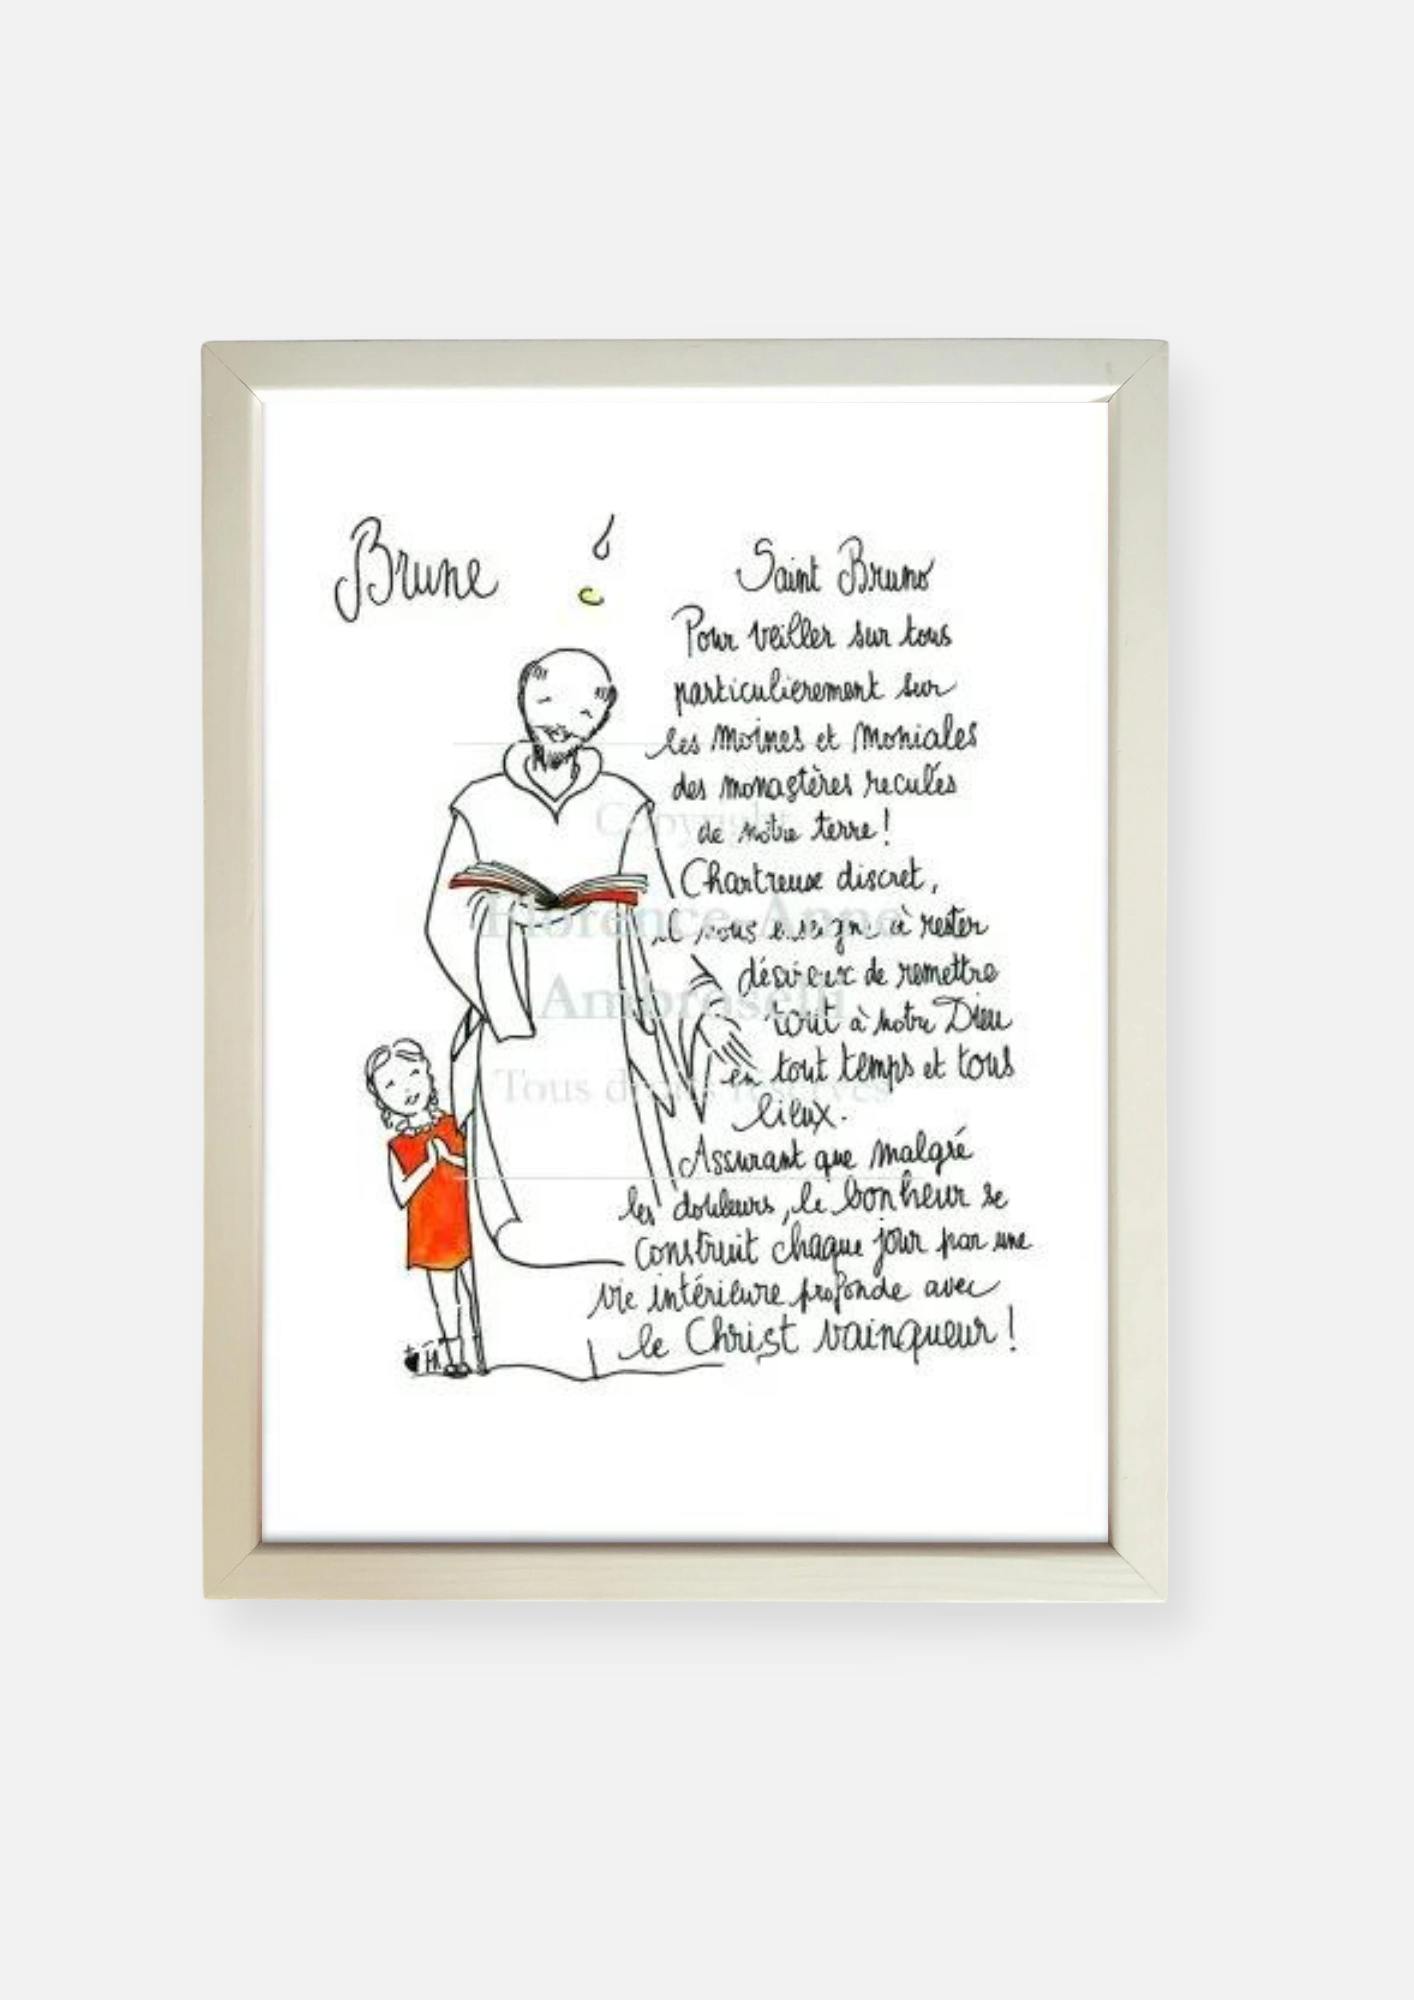 Brune
Saint Bruno
Pour veiller sur tous
particulièrement sur
les moines et moniales
des monastères reculés
de notre terre !
Chartreux discret,
il nous enseigne à rester
désireux de remettre
tout à notre Dieu
en tout temps et tous
lieux.
Assurant que malgré
les douleurs, le bonheur se
construit chaque jour par une
vie intérieure profonde avec
le Christ vainqueur !
Copyright
Florence-Anne
Ambroselli
Tous droits réservés